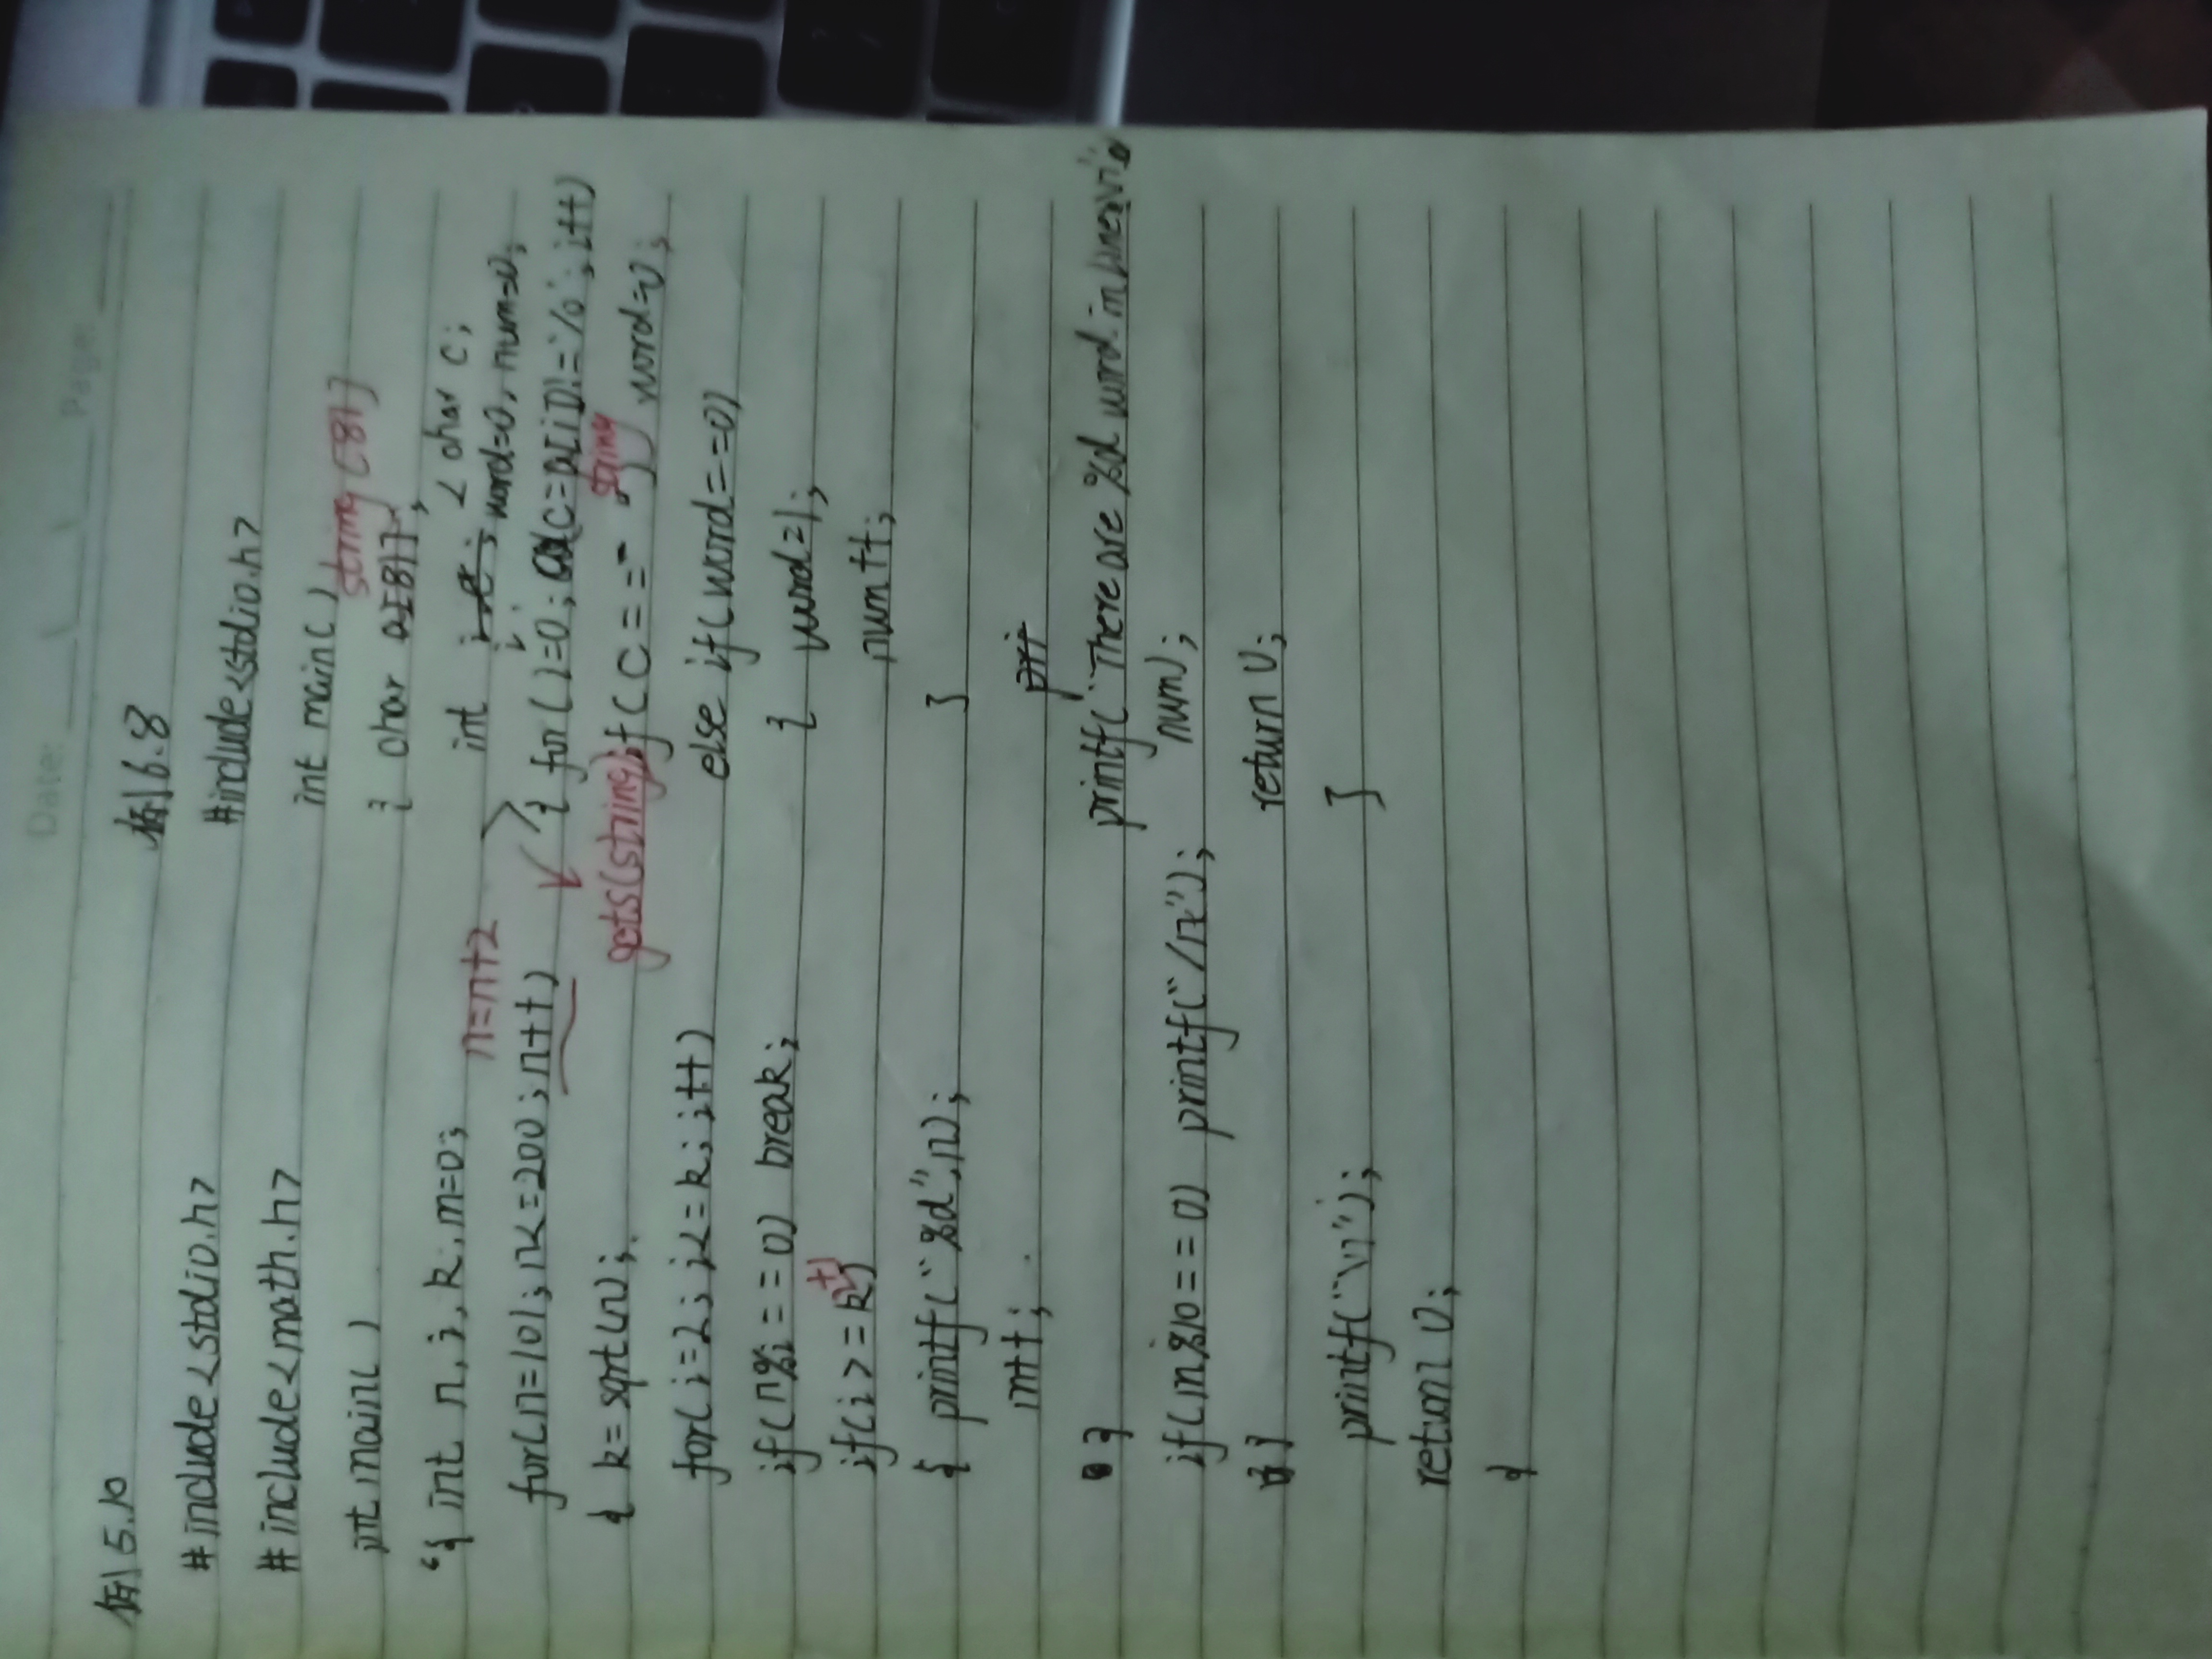 Date: Page:
例5.10
#include<stdio.h>
#include<math.h>
int main()
{ int n,i,k,m=0;
n=n+2
for(n=101;n<=200;n++)
{ k=sqrt(n);
for(i=2;i<=k;i++)
if(n%i==0) break;
if(i>=k+1)
{ printf("%d",n);
m++;
}
if(m%10==0) printf("/n");
}
printf("\n");
return 0;
}
例6.8
#include<stdio.h>
int main()
string[81]
{ char a[81],
int i, word=0,num=0;
char c;
i
{ for(i=0;(c=a[i])!='%';i++)
string
gets(string);
if(c==' ') word=0;
else if(word==0)
{ word=1;
num++;
}
pri
printf("There are %d word in line\n",
num);
return 0;
}